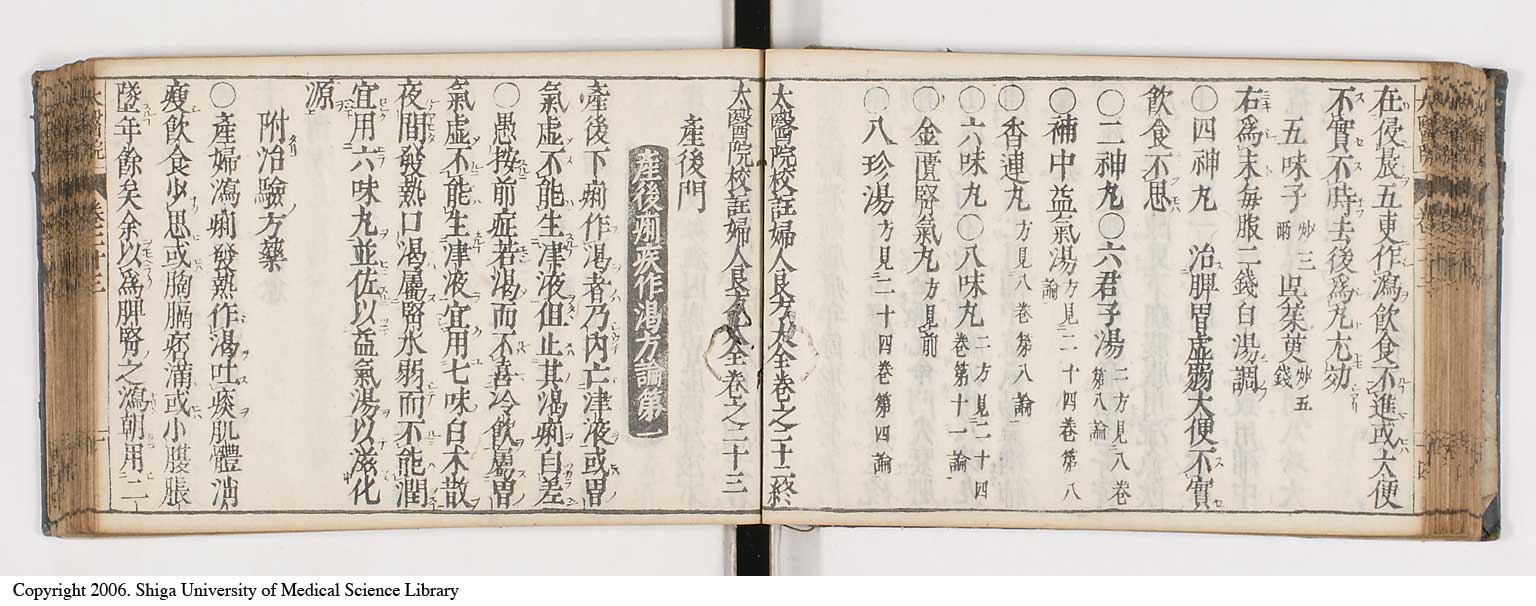 在侵晨五更作瀉飲食不進或大便
不實不時去後爲丸尤効
五味子炒三兩 呉茱萸炒五錢
右爲末毎服二錢白湯調
〇四神丸 治脾胃虚弱大便不實
飲食不思
〇二神丸〇六君子湯二方見八卷第八論
〇補中益氣湯方見二十四卷第八論
〇香連丸方見八卷第八論
〇六味丸〇八味丸二方見二十四卷第十一論
〇金匱腎氣丸方見前
〇八珍湯方見二十四卷第四論
太醫院校註婦人良方大全卷之二十二終
太醫院校註婦人良方大全卷之二十三
産後門
産後痢疾作渴方論第一
産後下痢作渴者乃内亡津液或胃
氣虚不能生津液但止其渴痢自差
〇愚按前症若渴而不喜冷飲屬胃
氣虚不能生津液宜用七味白朮散
夜間發熱口渴屬腎水弱而不能潤
宜用六味丸並佐以益氣湯以滋化
源
附治驗方藥
〇産婦瀉痢發熱作渴吐痰肌體消
瘦飲食少思或胸膈痞滿或小腹脹
墜年餘矣余以爲脾腎之瀉朝用二
Copyright 2006. Shiga University of Medical Science Library